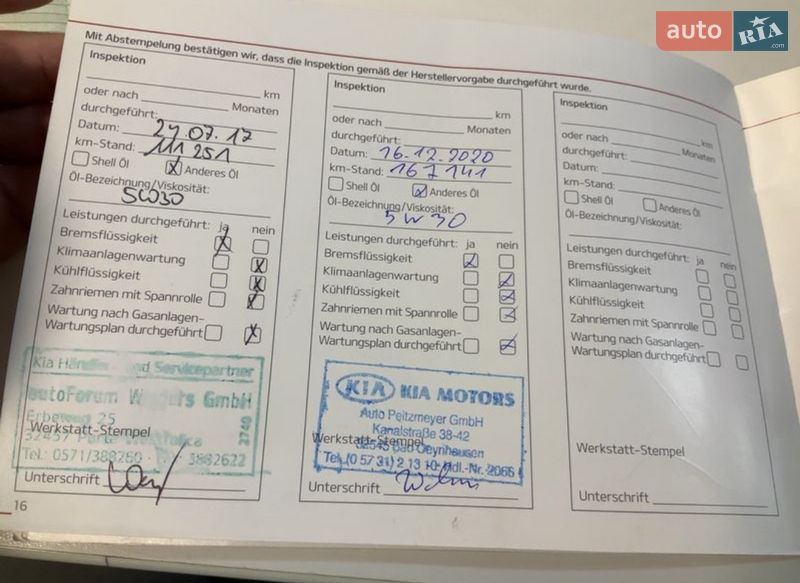 auto RIA .com
Mit Abstempelung bestätigen wir, dass die Inspektion gemäß der Herstellervorgabe durchgeführt wurde.
Inspektion
km
oder nach Monaten
durchgeführt:
Datum: 24.07.17
km-Stand: 111 251
Shell Öl Anderes Öl
Öl-Bezeichnung/Viskosität:
5W30
Leistungen durchgeführt: ja nein
Bremsflüssigkeit
Klimaanlagenwartung
Kühlflüssigkeit
Zahnriemen mit Spannrolle
Wartung nach Gasanlagen-
Wartungsplan durchgeführt
Kia Händler- und Servicepartner
autoForum GmbH
Erbeweg 25
32457 Porta Westfalica
Tel.: 0571/388260 3882622
2740
Werkstatt-Stempel
Unterschrift
16
Inspektion
km
oder nach Monaten
durchgeführt:
Datum: 16.12.2020
km-Stand: 167 141
Shell Öl Anderes Öl
Öl-Bezeichnung/Viskosität:
5W30
Leistungen durchgeführt: ja nein
Bremsflüssigkeit
Klimaanlagenwartung
Kühlflüssigkeit
Zahnriemen mit Spannrolle
Wartung nach Gasanlagen-
Wartungsplan durchgeführt
KIA KIA MOTORS
Auto Peitzmeyer GmbH
Kanalstraße 38-42
32545 Bad Oeynhausen
Tel. (0 57 31) 2 13 10 Hdl.-Nr. 2066
Werkstatt-Stempel
Unterschrift
Inspektion
km
oder nach Monaten
durchgeführt:
Datum:
km-Stand:
Shell Öl Anderes Öl
Öl-Bezeichnung/Viskosität:
Leistungen durchgeführt: ja nein
Bremsflüssigkeit
Klimaanlagenwartung
Kühlflüssigkeit
Zahnriemen mit Spannrolle
Wartung nach Gasanlagen-
Wartungsplan durchgeführt
Werkstatt-Stempel
Unterschrift